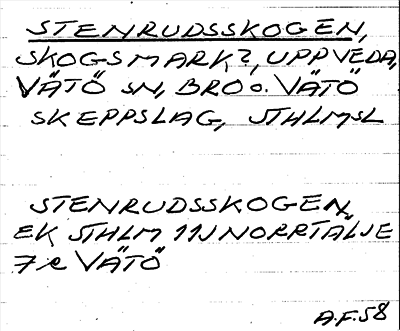 STENRUDSSKOGEN,
SKOGSMARK?, UPPVEDA,
VÄTÖ SN, BRO o. VÄTÖ
SKEPPSLAG, STHLMSL
STENRUDSSKOGEN,
EK STHLM 11J NORRTÄLJE
7 e VÄTÖ
A.F.58